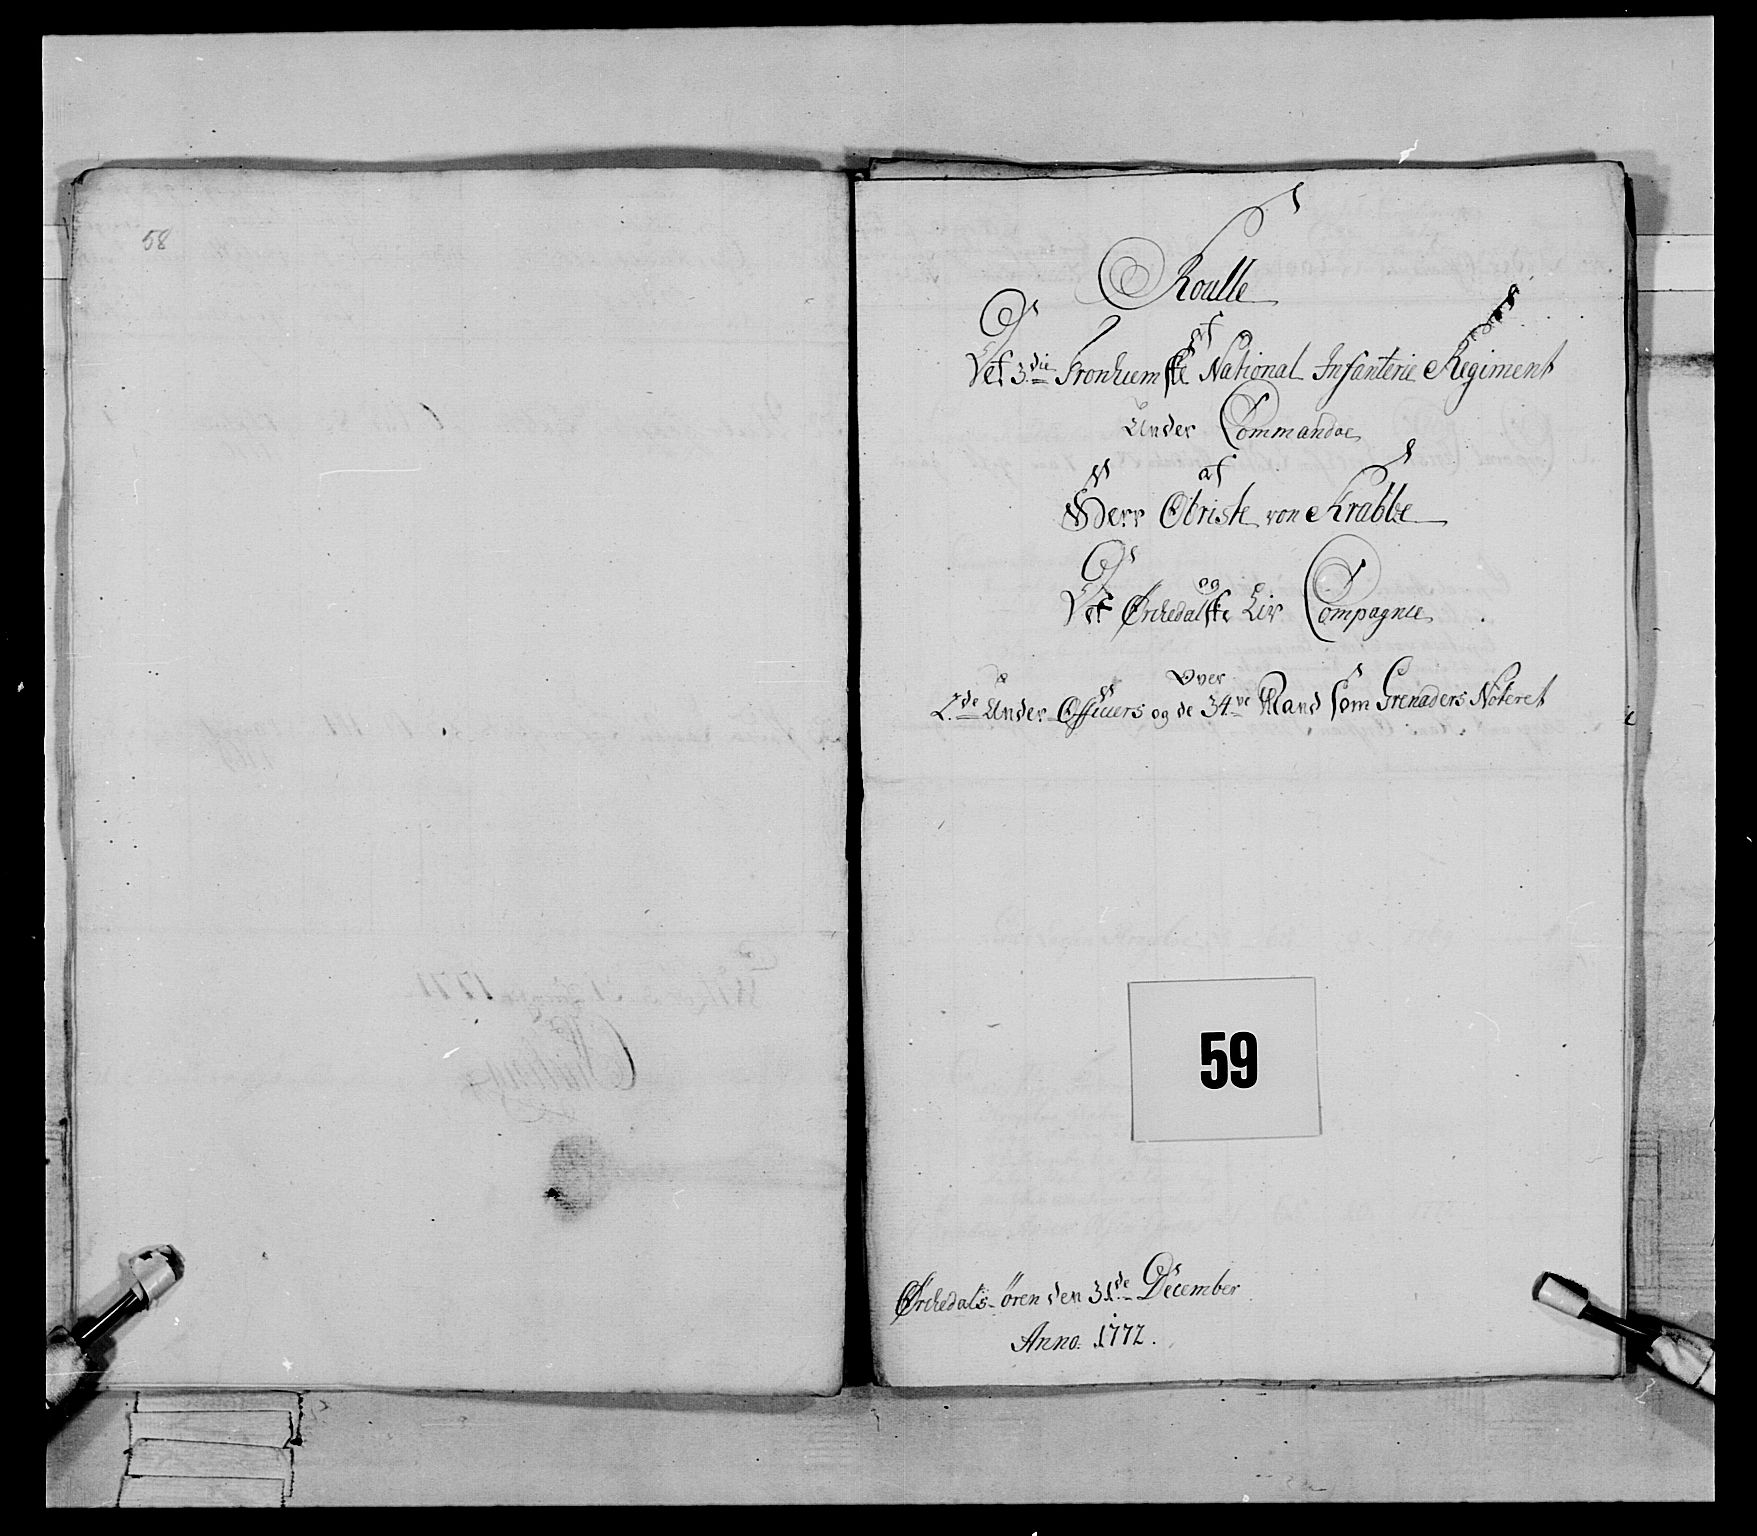 58
Roulle
af
Det 3die Tronhiemske National Infanterie Regiment
Under Commandoe
af
Herr Obriste von Krabbe
og
Det Örchedalske Liv Compagnie
Over
2de Under Officiers og de 34ve Mand som Grenaders Noteret
59
Örchedals-ören den 31de December
Anno. 1772.